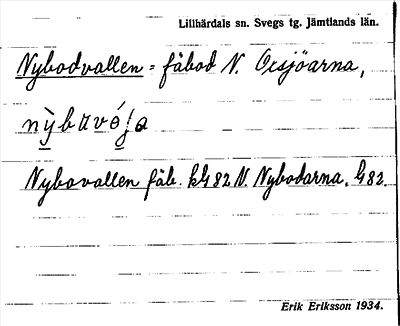 Lillhärdals sn. Svegs tg. Jämtlands län.
Nybodvallen = fäbod N. Orsjöarna,
Nybovallen fäb. kG 82 N. Nybodarna, G 82.
Erik Eriksson 1934.